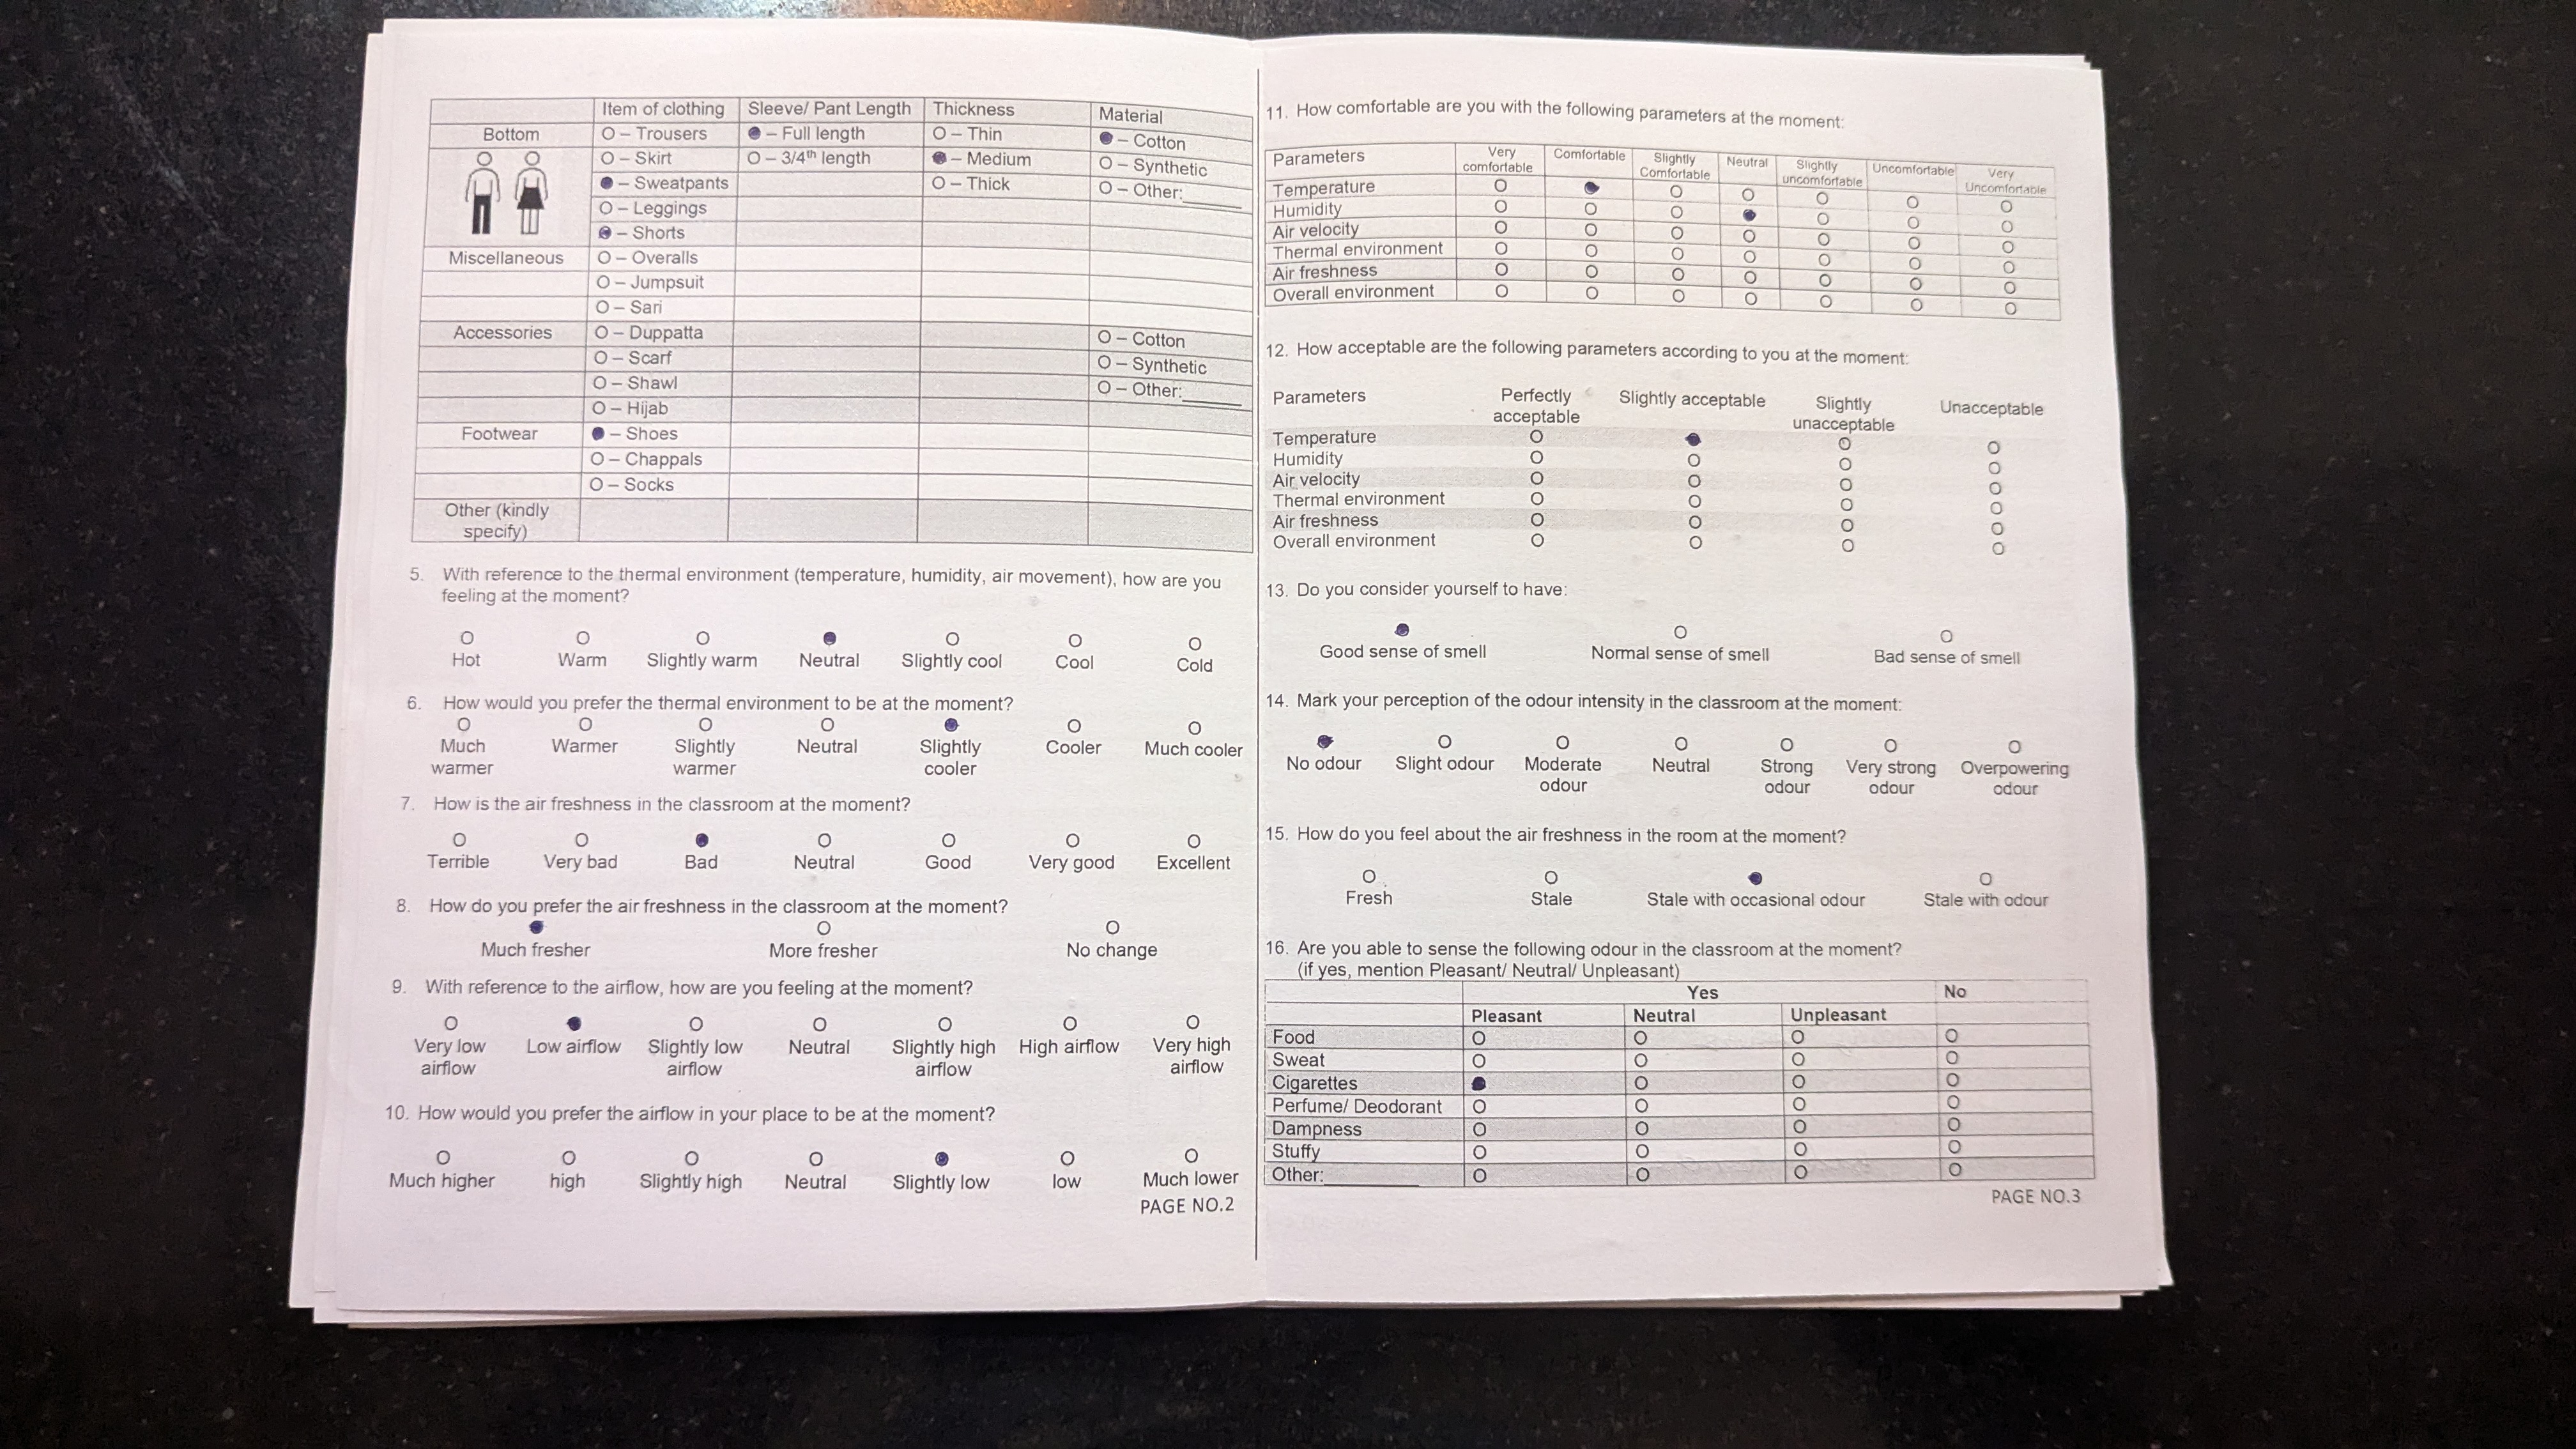 Item of clothing Sleeve/ Pant Length Thickness Material
Bottom O – Trousers ● – Full length O – Thin ● – Cotton
O – Skirt O – 3/4th length ● – Medium O – Synthetic
● – Sweatpants O – Thick O – Other:______
O – Leggings
● – Shorts
Miscellaneous O – Overalls
O – Jumpsuit
O – Sari
Accessories O – Duppatta O – Cotton
O – Scarf O – Synthetic
O – Shawl O – Other:______
O – Hijab
Footwear ● – Shoes
O – Chappals
O – Socks
Other (kindly
specify)
5. With reference to the thermal environment (temperature, humidity, air movement), how are you
feeling at the moment?
O O O ● O O O
Hot Warm Slightly warm Neutral Slightly cool Cool Cold
6. How would you prefer the thermal environment to be at the moment?
O O O O ● O O
Much Warmer Slightly Neutral Slightly Cooler Much cooler
warmer warmer cooler
7. How is the air freshness in the classroom at the moment?
O O ● O O O O
Terrible Very bad Bad Neutral Good Very good Excellent
8. How do you prefer the air freshness in the classroom at the moment?
● O O
Much fresher More fresher No change
9. With reference to the airflow, how are you feeling at the moment?
O ● O O O O O
Very low Low airflow Slightly low Neutral Slightly high High airflow Very high
airflow airflow airflow airflow
10. How would you prefer the airflow in your place to be at the moment?
O O O O ● O O
Much higher high Slightly high Neutral Slightly low low Much lower
PAGE NO.2
11. How comfortable are you with the following parameters at the moment:
Parameters Very Comfortable Slightly Neutral Slightly Uncomfortable Very
comfortable Comfortable uncomfortable Uncomfortable
Temperature O ● O O O O O
Humidity O O O ● O O O
Air velocity O O O O O O O
Thermal environment O O O O O O O
Air freshness O O O O O O O
Overall environment O O O O O O O
12. How acceptable are the following parameters according to you at the moment:
Parameters Perfectly Slightly acceptable Slightly Unacceptable
acceptable unacceptable
Temperature O ● O O
Humidity O O O O
Air velocity O O O O
Thermal environment O O O O
Air freshness O O O O
Overall environment O O O O
13. Do you consider yourself to have:
● O O
Good sense of smell Normal sense of smell Bad sense of smell
14. Mark your perception of the odour intensity in the classroom at the moment:
● O O O O O O
No odour Slight odour Moderate Neutral Strong Very strong Overpowering
odour odour odour odour
15. How do you feel about the air freshness in the room at the moment?
O O ● O
Fresh Stale Stale with occasional odour Stale with odour
16. Are you able to sense the following odour in the classroom at the moment?
(if yes, mention Pleasant/ Neutral/ Unpleasant)
Yes No
Pleasant Neutral Unpleasant
Food O O O O
Sweat O O O O
Cigarettes ● O O O
Perfume/ Deodorant O O O O
Dampness O O O O
Stuffy O O O O
Other:__________ O O O O
PAGE NO.3